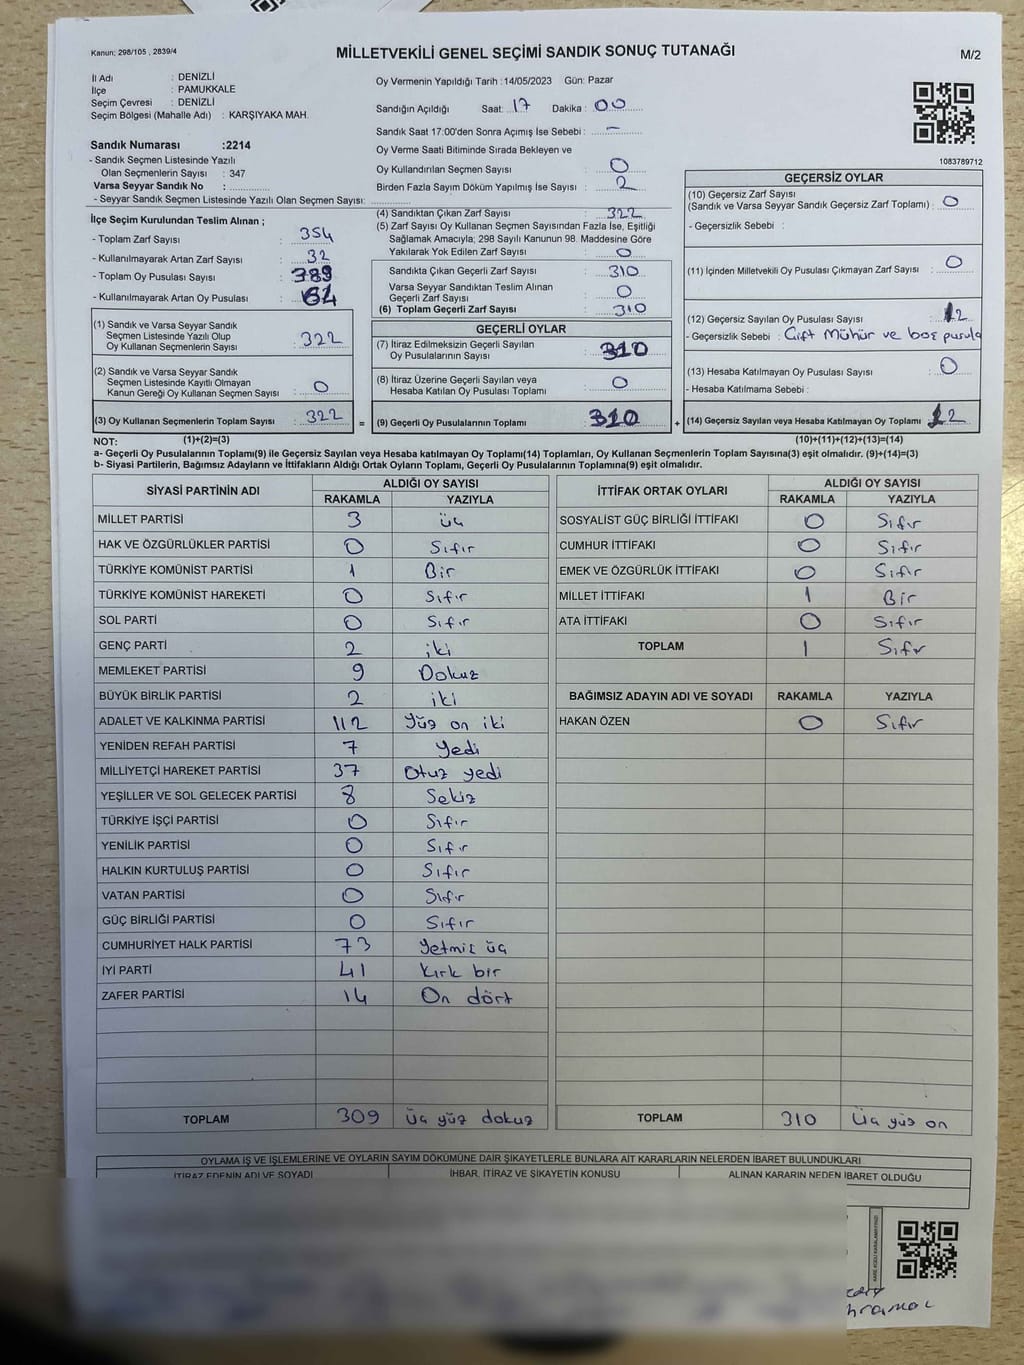 Kanun; 298/105 , 2839/4
MİLLETVEKİLİ GENEL SEÇİMİ SANDIK SONUÇ TUTANAĞI
M/2
İl Adı : DENİZLİ
İlçe : PAMUKKALE
Seçim Çevresi : DENİZLİ
Seçim Bölgesi (Mahalle Adı) : KARŞIYAKA MAH.
Sandık Numarası :2214
- Sandık Seçmen Listesinde Yazılı
Olan Seçmenlerin Sayısı : 347
Varsa Seyyar Sandık No : ..............
- Seyyar Sandık Seçmen Listesinde Yazılı Olan Seçmen Sayısı: ..............
Oy Vermenin Yapıldığı Tarih :14/05/2023 Gün: Pazar
Sandığın Açıldığı Saat: 17 Dakika : 00
Sandık Saat 17:00'den Sonra Açımış İse Sebebi : -
Oy Verme Saati Bitiminde Sırada Bekleyen ve
Oy Kullandırılan Seçmen Sayısı : 0
Birden Fazla Sayım Döküm Yapılmış İse Sayısı : 2
1083789712
İlçe Seçim Kurulundan Teslim Alınan ;
- Toplam Zarf Sayısı : 354
- Kullanılmayarak Artan Zarf Sayısı : 32
- Toplam Oy Pusulası Sayısı : 389
- Kullanılmayarak Artan Oy Pusulası :
(1) Sandık ve Varsa Seyyar Sandık
Seçmen Listesinde Yazılı Olup
Oy Kullanan Seçmenlerin Sayısı : 322
(2) Sandık ve Varsa Seyyar Sandık
Seçmen Listesinde Kayıtlı Olmayan
Kanun Gereği Oy Kullanan Seçmen Sayısı : 0
(3) Oy Kullanan Seçmenlerin Toplam Sayısı : 322 =
(4) Sandıktan Çıkan Zarf Sayısı : 322
(5) Zarf Sayısı Oy Kullanan Seçmen Sayısından Fazla İse, Eşitliği
Sağlamak Amacıyla; 298 Sayılı Kanunun 98. Maddesine Göre
Yakılarak Yok Edilen Zarf Sayısı : 0
Sandıkta Çıkan Geçerli Zarf Sayısı : 310
Varsa Seyyar Sandıktan Teslim Alınan
Geçerli Zarf Sayısı : 0
(6) Toplam Geçerli Zarf Sayısı : 310
GEÇERLİ OYLAR
(7) İtiraz Edilmeksizin Geçerli Sayılan
Oy Pusulalarının Sayısı : 310
(8) İtiraz Üzerine Geçerli Sayılan veya
Hesaba Katılan Oy Pusulası Toplamı : 0
(9) Geçerli Oy Pusulalarının Toplamı : 310 +
GEÇERSİZ OYLAR
(10) Geçersiz Zarf Sayısı
(Sandık ve Varsa Seyyar Sandık Geçersiz Zarf Toplamı) : 0
- Geçersizlik Sebebi :
(11) İçinden Milletvekili Oy Pusulası Çıkmayan Zarf Sayısı : 0
(12) Geçersiz Sayılan Oy Pusulası Sayısı : 12
- Geçersizlik Sebebi : Çift Mühür ve boş pusula
(13) Hesaba Katılmayan Oy Pusulası Sayısı : 0
- Hesaba Katılmama Sebebi :
(14) Geçersiz Sayılan veya Hesaba Katılmayan Oy Toplamı : 12
NOT: (1)+(2)=(3) (10)+(11)+(12)+(13)=(14)
a- Geçerli Oy Pusulalarının Toplamı(9) ile Geçersiz Sayılan veya Hesaba katılmayan Oy Toplamı(14) Toplamları, Oy Kullanan Seçmenlerin Toplam Sayısına(3) eşit olmalıdır. (9)+(14)=(3)
b- Siyasi Partilerin, Bağımsız Adayların ve İttifakların Aldığı Ortak Oyların Toplamı, Geçerli Oy Pusulalarının Toplamına(9) eşit olmalıdır.
SİYASİ PARTİNİN ADI ALDIĞI OY SAYISI
RAKAMLA YAZIYLA
MİLLET PARTİSİ 3 üç
HAK VE ÖZGÜRLÜKLER PARTİSİ 0 Sıfır
TÜRKİYE KOMÜNİST PARTİSİ 1 Bir
TÜRKİYE KOMÜNİST HAREKETİ 0 Sıfır
SOL PARTİ 0 Sıfır
GENÇ PARTİ 2 iki
MEMLEKET PARTİSİ 9 Dokuz
BÜYÜK BİRLİK PARTİSİ 2 iki
ADALET VE KALKINMA PARTİSİ 112 Yüz on iki
YENİDEN REFAH PARTİSİ 7 Yedi
MİLLİYETÇİ HAREKET PARTİSİ 37 Otuz yedi
YEŞİLLER VE SOL GELECEK PARTİSİ 8 Sekiz
TÜRKİYE İŞÇİ PARTİSİ 0 Sıfır
YENİLİK PARTİSİ 0 Sıfır
HALKIN KURTULUŞ PARTİSİ 0 Sıfır
VATAN PARTİSİ 0 Sıfır
GÜÇ BİRLİĞİ PARTİSİ 0 Sıfır
CUMHURİYET HALK PARTİSİ 73 Yetmiş üç
İYİ PARTİ 41 Kırk bir
ZAFER PARTİSİ 14 On dört
TOPLAM 309 üç yüz dokuz
İTTİFAK ORTAK OYLARI ALDIĞI OY SAYISI
RAKAMLA YAZIYLA
SOSYALİST GÜÇ BİRLİĞİ İTTİFAKI 0 Sıfır
CUMHUR İTTİFAKI 0 Sıfır
EMEK VE ÖZGÜRLÜK İTTİFAKI 0 Sıfır
MİLLET İTTİFAKI 1 Bir
ATA İTTİFAKI 0 Sıfır
TOPLAM 1 Sıfır
BAĞIMSIZ ADAYIN ADI VE SOYADI RAKAMLA YAZIYLA
HAKAN ÖZEN 0 Sıfır
TOPLAM 310 Üç yüz on
OYLAMA İŞ VE İŞLEMLERİNE VE OYLARIN SAYIM DÖKÜMÜNE DAİR ŞİKAYETLERLE BUNLARA AİT KARARLARIN NELERDEN İBARET BULUNDUKLARI
İTİRAZ EDENİN ADI VE SOYADI İHBAR, İTİRAZ VE ŞİKAYETİN KONUSU ALINAN KARARIN NEDEN İBARET OLDUĞU